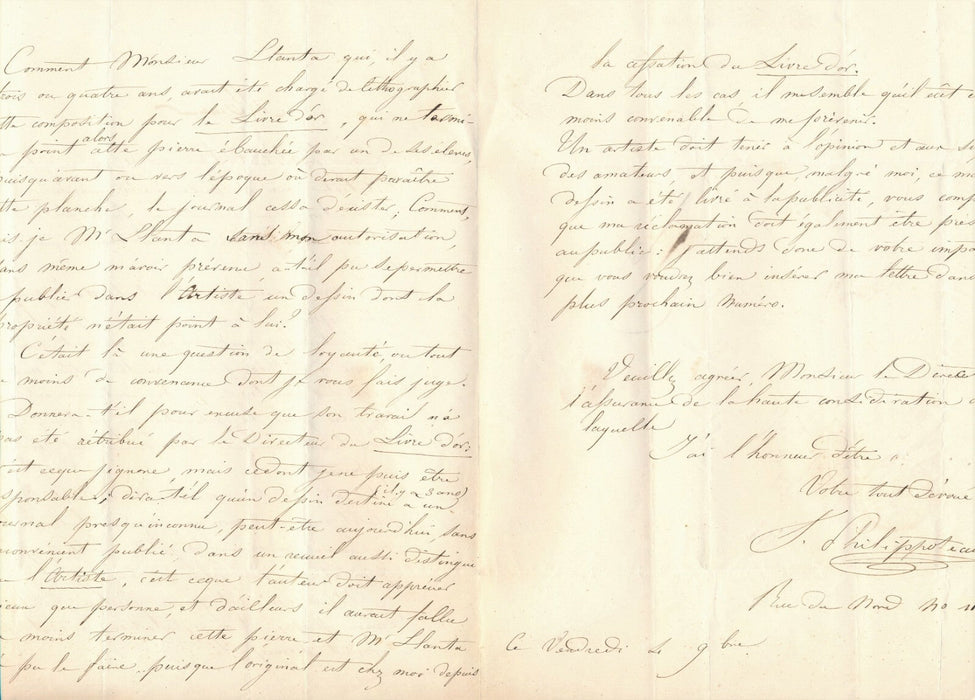 Comment Monsieur Llanta qui, il y a
rois ou quatre ans, avait été chargé de lithographier
tte composition pour le Livre d'or, qui ne termi-
a point alors cette pierre ébauchée par un de ses élèves,
puisqu'avant ou vers l'époque où devait paraître
tte planche, le journal cessa d'exister; Comment,
is je Mr Llanta sans mon autorisation,
ans même m'avoir prévenu a-t-il pu se permettre
publié dans l'Artiste un dessin dont la
ropriété n'était point à lui?
C'était là une question de loyauté, ou tout
moins de convenance dont je vous fais juge.
Donnera-t'il pour excuse que son travail n'a
pas été rétribué par le Directeur du Livre d'or:
c'est ce que j'ignore, mais ce dont je ne puis être
sponsable; dira-t'il qu'un dessin destiné (il y a 3 ans) à un
ournal presqu'inconnu, peut-être aujourd'hui sans
nconvénient publié dans un recueil aussi distingué
l'Artiste, c'est ce que l'auteur doit apprécier
ieux que personne, et d'ailleurs il aurait fallu
moins terminer cette pierre, et Mr Llanta
pu le faire puisque l'original est chez moi depuis
la cessation du Livre d'or.
Dans tous les cas il me semble qu'il eût é
moins convenable de me prévenir.
Un artiste doit tenir à l'opinion et aux
des amateurs et puisque, malgré moi, ce
dessin a été livré à la publicité, vous comp
que ma réclamation doit également être pres
au public: j'attends donc de votre impa
que vous voudrez bien insérer ma lettre dans
plus prochain numéro.
Veuillez agréer, Monsieur le Directe
l'assurance de la haute considération
laquelle
J'ai l'honneur d'être
Votre tout dévoué
F. Philippoteau
Rue du Nord no
Ce Vendredi 4 9bre